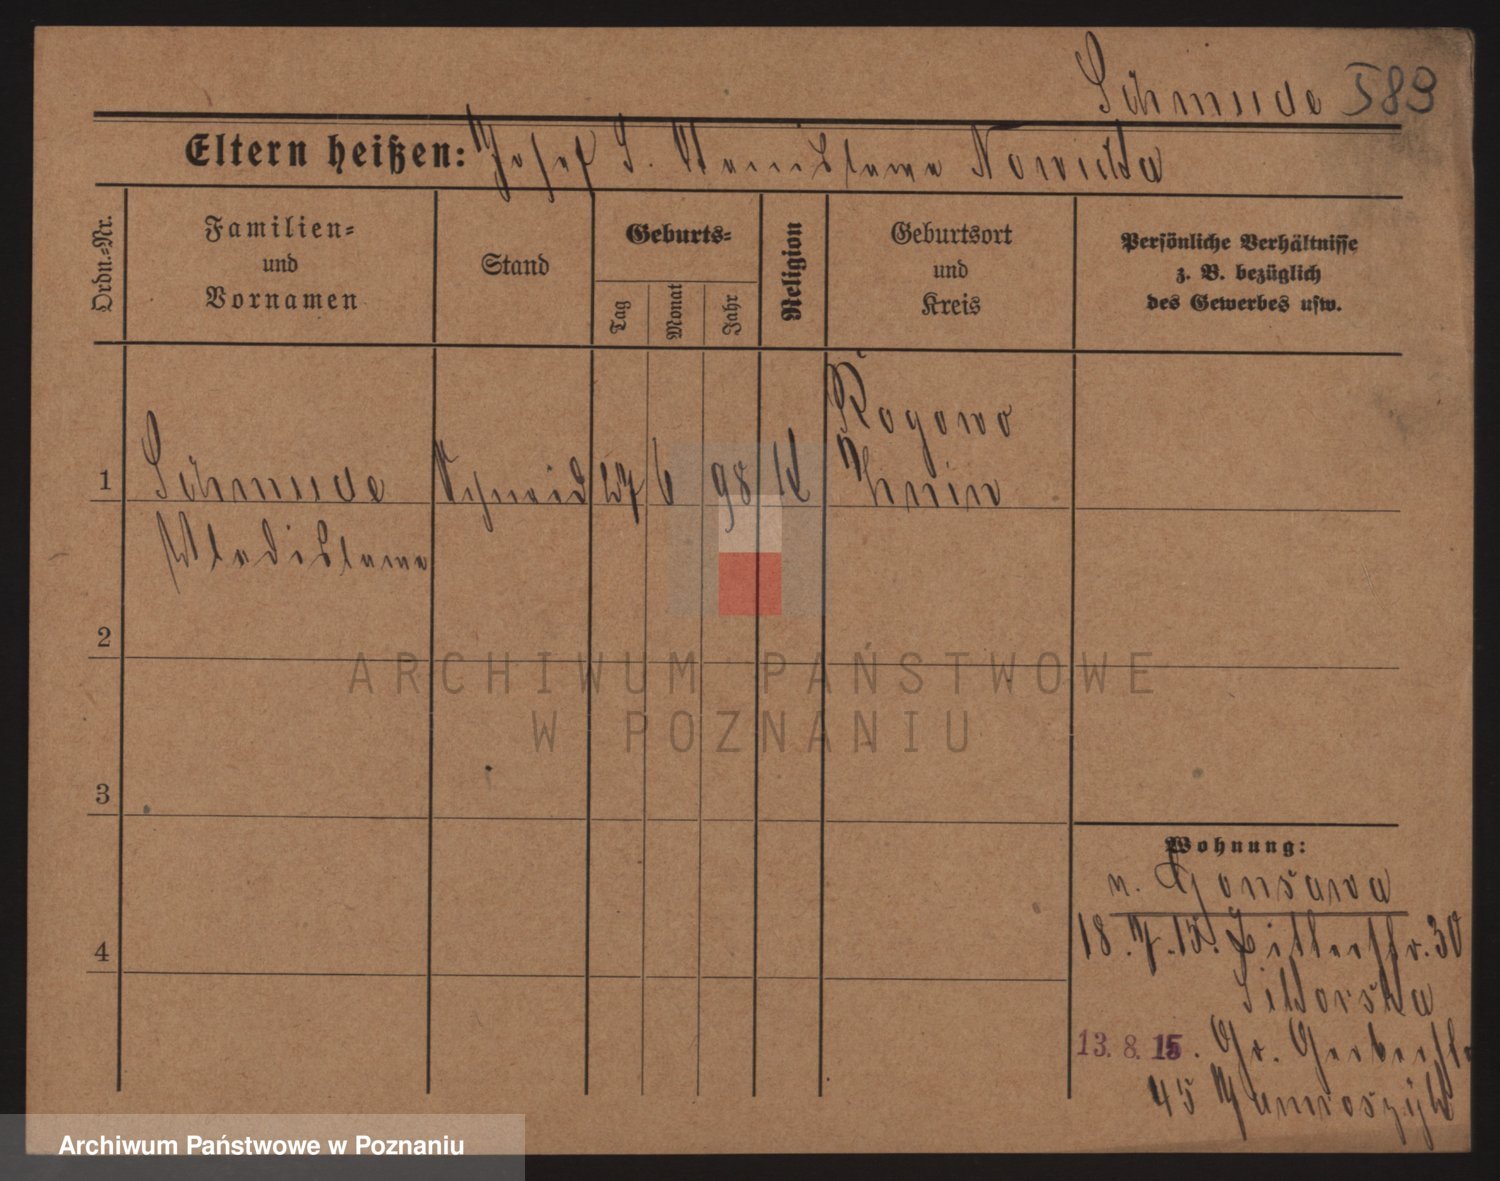 Schmude 589
Eltern heißen: Josef S. Stanislawa Nowicka
Ordn.-Nr.
Familien-
und
Vornamen
Stand
Geburts-
Tag
Monat
Jahr
Religion
Geburtsort
und
Kreis
Persönliche Verhältnisse
z. B. bezüglich
des Gewerbes usw.
Rogowo
1 Schmude 27 6 98 K Znin
Wladislawa
2
3
4
Wohnung:
n. Gonsawa
18. 7. 15. Ritterstr. 30
Sikorska
13. 8. 15. Gr. Gerberstr
45
ARCHIWUM PAŃSTWOWE
W POZNANIU
Archiwum Państwowe w Poznaniu